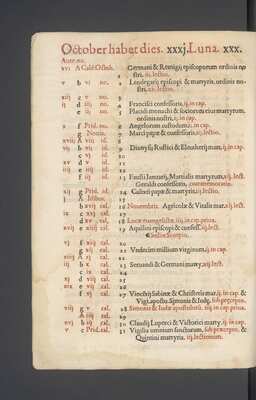 October habet dies. xxxj. Luna. xxx.
Aure. no.
xvj A Cal. Octob. Germani & Remigij episcoporum ordinis no
stri. iij. lectio.
v b vj no. 2 Leodegarij episcopi & martyris. ordinis no-
stri.
xiij c v no. 3
ij d iij no. 4 Francisci confessoris. ij. in cap.
e iij no. 5 Placidi monachi & sociorum eius martyrum.
ordinis nostri.
x f Prid. no. 6 Angelorum custodum. in cap.
g Nonis. 7 Marci papæ & confessoris.
xviij A viij id. 8
vij b vij id. 9 Dionysij Rustici & Eleutherij mar. ij. in cap.
c vj id. 10
xv d v id. 11
iiij e iiij id. 12
f iij id. 13 Fausti Ianuarij, Martialis martyrum. iij. lect.
Geraldi confessoris, commemoratio.
xij g Prid. id. 14 Calixti papæ & martyris. iij. lectio.
j A Idibus. 15
b xvij cal. 16 Nouembris. Agricolæ & Vitalis mar. iij. lect.
ix c xvj cal. 17
d xv cal. 18 Lucæ euangelistæ. iij. in cap.
xvij e xiiij cal. 19 Aquilini episcopi & confess. iij. lect.
Sol in Scorpio.
vj f xiij cal. 20
g xij cal. 21 Vndecim millium virginum. ij. in cap.
xiiij A xj cal. 22
iij b x cal. 23 Seruandi & Germani mart. iij. lect.
c ix cal. 24
xj d viij cal. 25
e vij cal. 26
f vj cal. 27 Vincētij Sabinæ & Christetis mar. ij. in cap. &
Vigi. apostu. Simonis & Iudę.
viij g v cal. 28 Simonis & Iudæ apostolorū. iij. in cap.
A iiij cal. 29
xvj b iij cal. 30 Claudij Luperci & Victorici marty. ij. in cap.
v c Prid. cal. 31 Vigilia omnium sanctorum. & Quintini martyris. iij. lectionum.